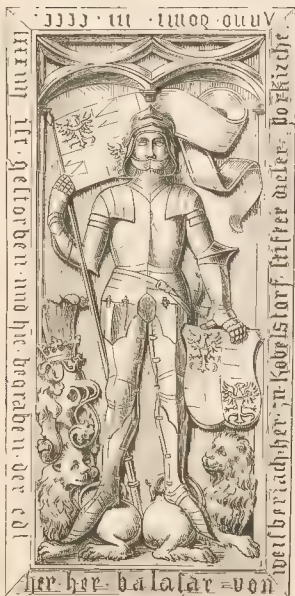 Anno · domi · m · cccc
ist · gestorben · und · hie · begraben · der · edl
her her balasar von
weisberiach · her · zu · kobelstorf · stifter dieser · porkirche